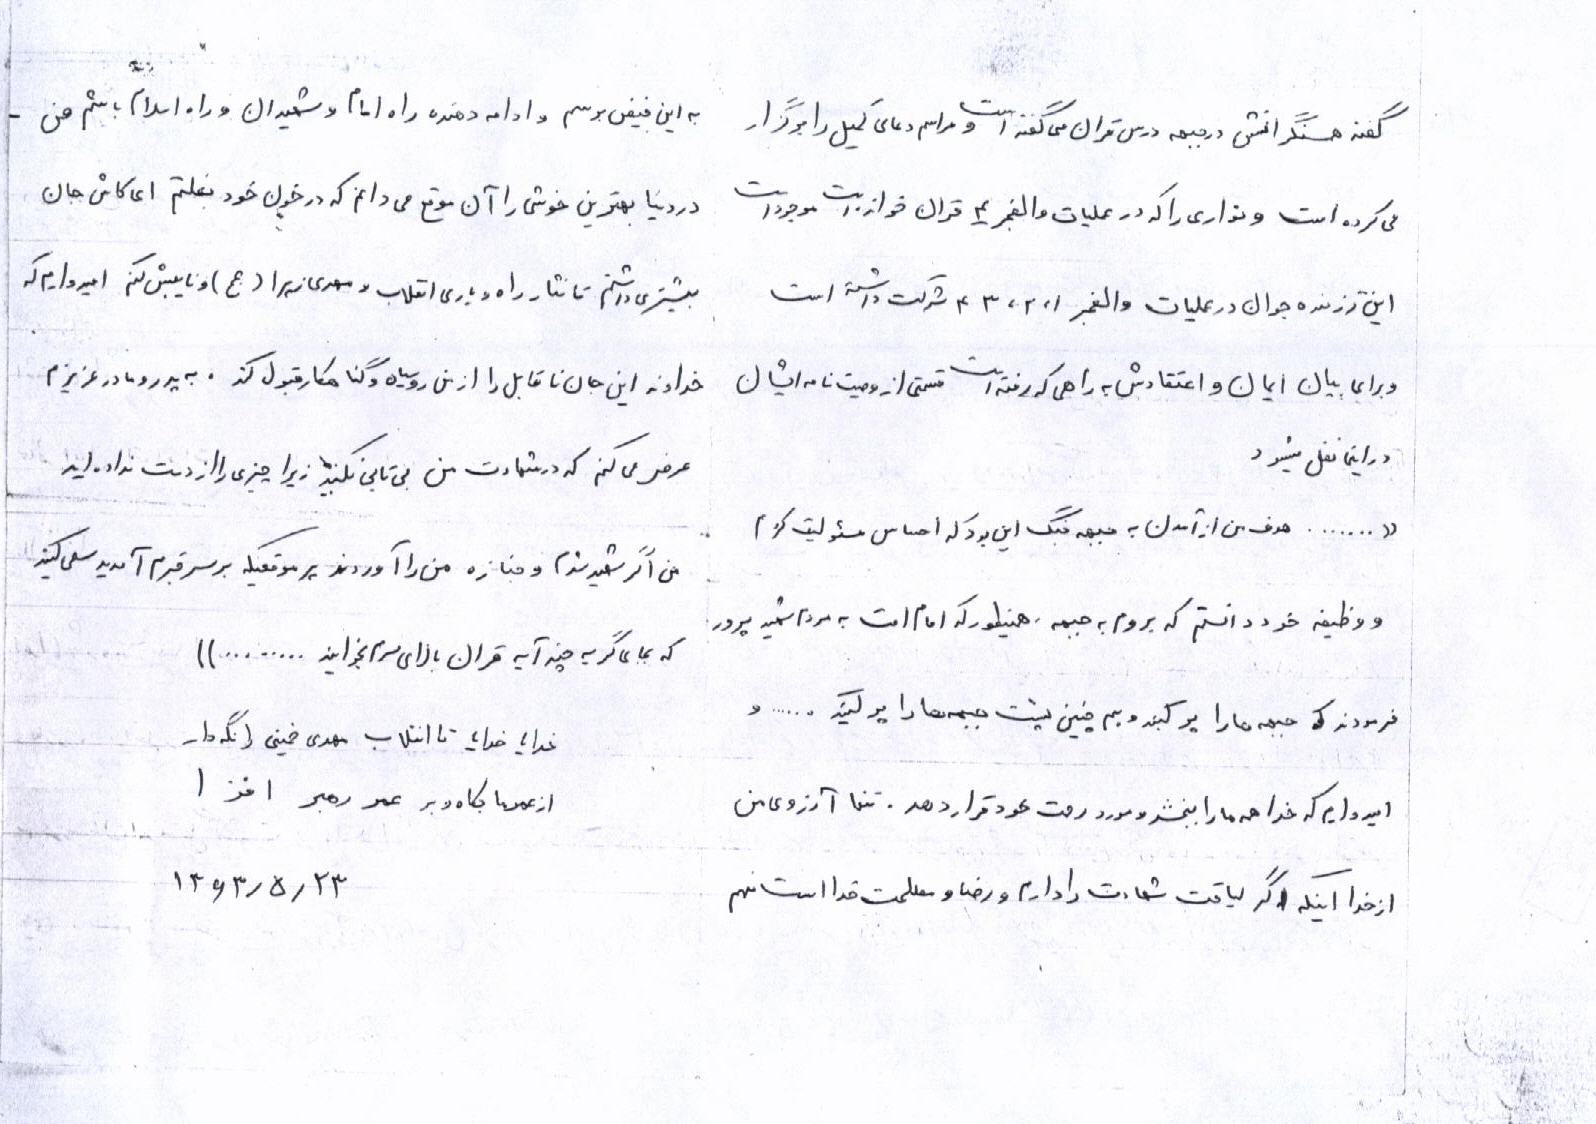 گفته همسنگرانش در جبهه درس قران می گفته است و مراسم دعای کمیل را برگزار
می کرده است و نواری را که در عملیات والفجر ۴ قران خوانده است موجود است
این رزمنده جوان در عملیات والفجر ۱، ۲، ۳ ۴ شرکت داشته است
و برای بیان ایمان و اعتقادش به راهی که رفته است قسمتی از وصیت نامه ایشان
در اینجا نقل میشود
(( ........ هدف من از آمدن به جبهه جنگ این بود که احساس مسئولیت کردم
و وظیفه خود دانستم که بروم به جبهه، همینطور که امام امت به مردم شهید پرور
فرمودند که جبهه ها را پر کنید و هم چنین پشت جبهه ها را پر کنید ...... و
امیدوارم که خدا همه ما را ببخشد و مورد رحمت خود قرار دهد . تنها آرزوی من
از خدا اینکه اگر لیاقت شهادت را دارم و رضا و مصلحت خدا است منهم
به این فیض برسم و ادامه دهنده راه امام و شهیدان و راه اسلام باشم من
در دنیا بهترین خوشی را آن موقع می دانم که در خون خود بغلتم ای کاش جان
بیشتری داشتم تا نثار راه و یاری انقلاب و مهدی زهرا (عج) و نایبش کنم امیدوارم که
خداوند این جان ناقابل را از من روسیاه و گناهکار قبول کند . به پدر و مادر عزیزم
عرض می کنم که در شهادت من بی تابی نکنید زیرا چیزی را از دست نداده اید
من اگر شهید شدم و جنازه من را آوردند هر موقعیکه بر سر قبرم آمدید سعی کنید
که بجای گریه چند آیه قران بالای سرم بخوانید ..........))
خدایا خدایا تا انقلاب مهدی خمینی را نگه دار
از عمر ما بکاه و بر عمر رهبر افزا
۱۳۶۳/۵/۲۳